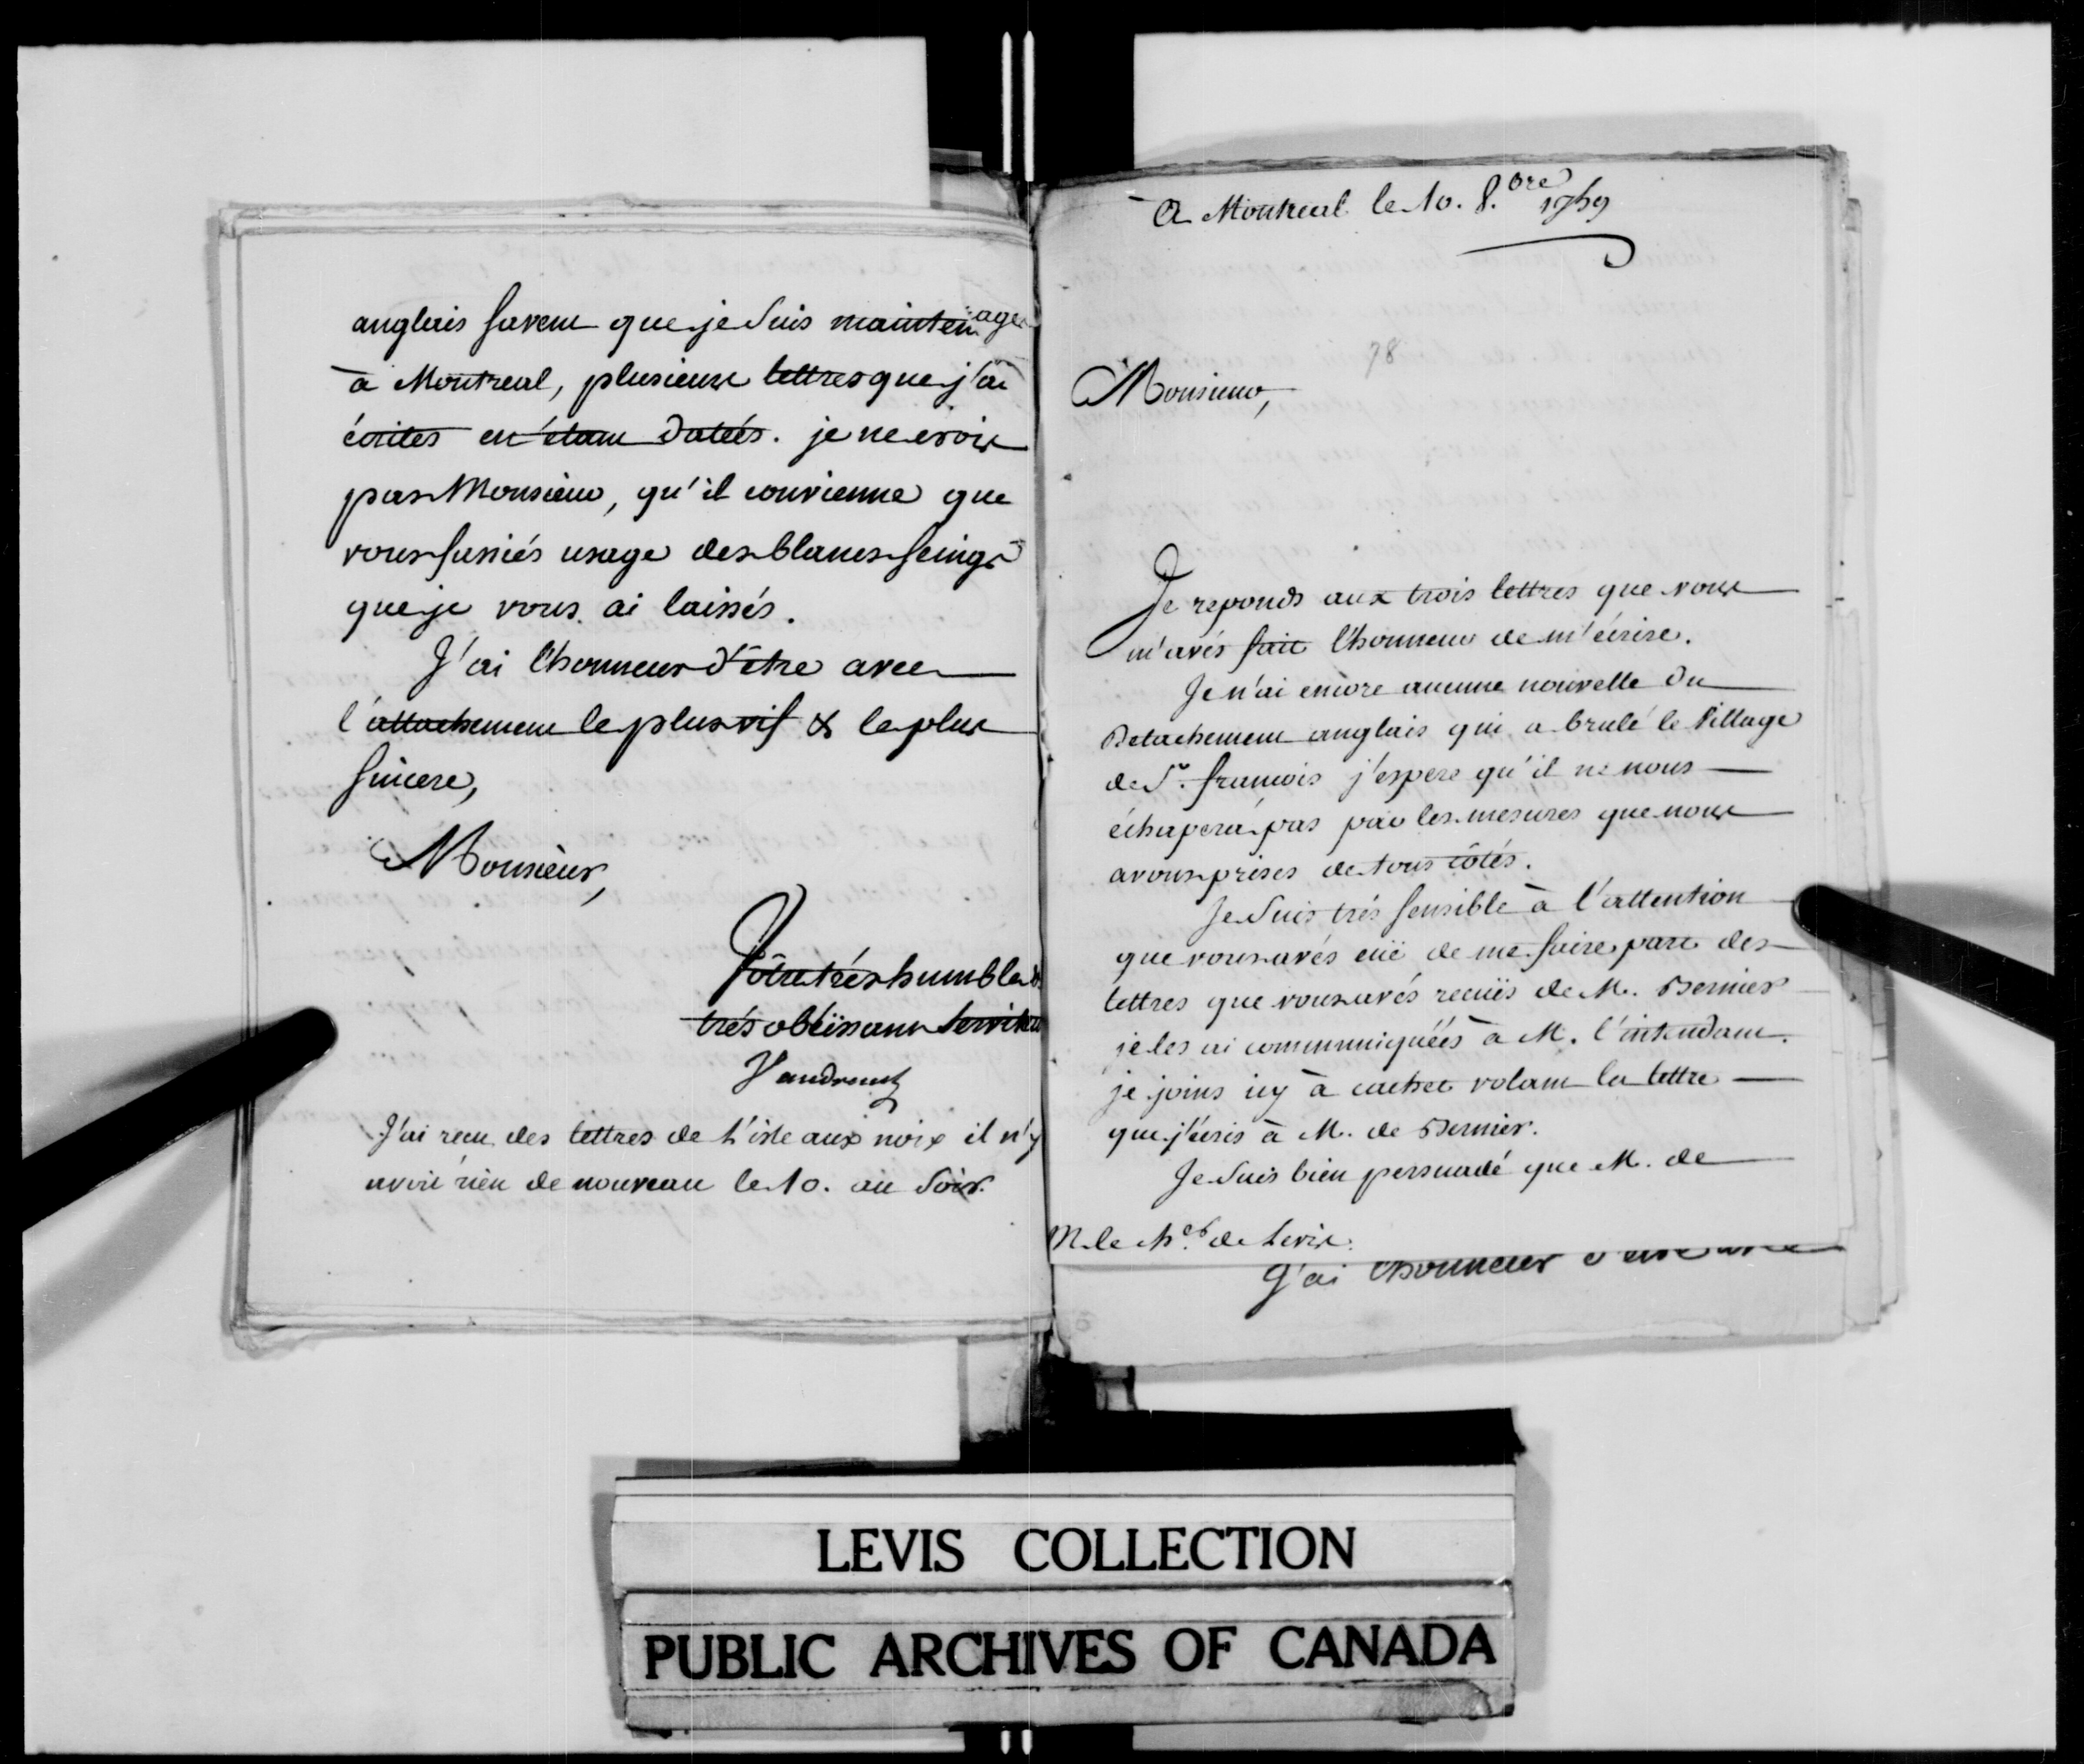 anglais savent que je suis maintenage
à Montreal, plusieurs lettres que j'ai
écrites en étant datées. je ne crois
pas Monsieur, qu'il convienne que
vous fassiés usage des blancs seings
que je vous ai laissés.
J'ai l'honneur d'être avec
l'attachement le plus vif & le plus
sincere,
Monsieur,
Vôtre très humble &
très obéissant serviteur
Vaudreuil
J'ai reçu des lettres de L'isle aux noix il n'y
avoit rien de nouveau le 10. au soir.
A Montreal le 10. 8.bre 1759
78
Monsieur,
Je reponds aux trois lettres que vous
m'avés fait l'honneur de m'écrire.
Je n'ai encore aucune nouvelle du
Detachement anglais qui a brulé le Village
de St. francois j'espere qu'il ne nous
échapera pas par les mesures que nous
avons prises de tous côtés.
Je suis très sensible à l'attention
que vous avés eüe de me faire part des
lettres que vous avés reçuës de M. Bernier
je les ai communiquéés à M. l'intendant.
je joins icy à cachet volant la lettre
que j'écris à M. de Bernier.
Je suis bien persuadé que M. de
M. le Mis. de Levis.
J'ai l'honneur d'être avec
LEVIS COLLECTION
PUBLIC ARCHIVES OF CANADA